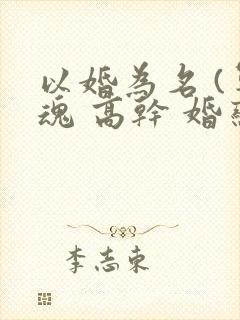 以婚為名 (
魂 高幹 婚
李志東